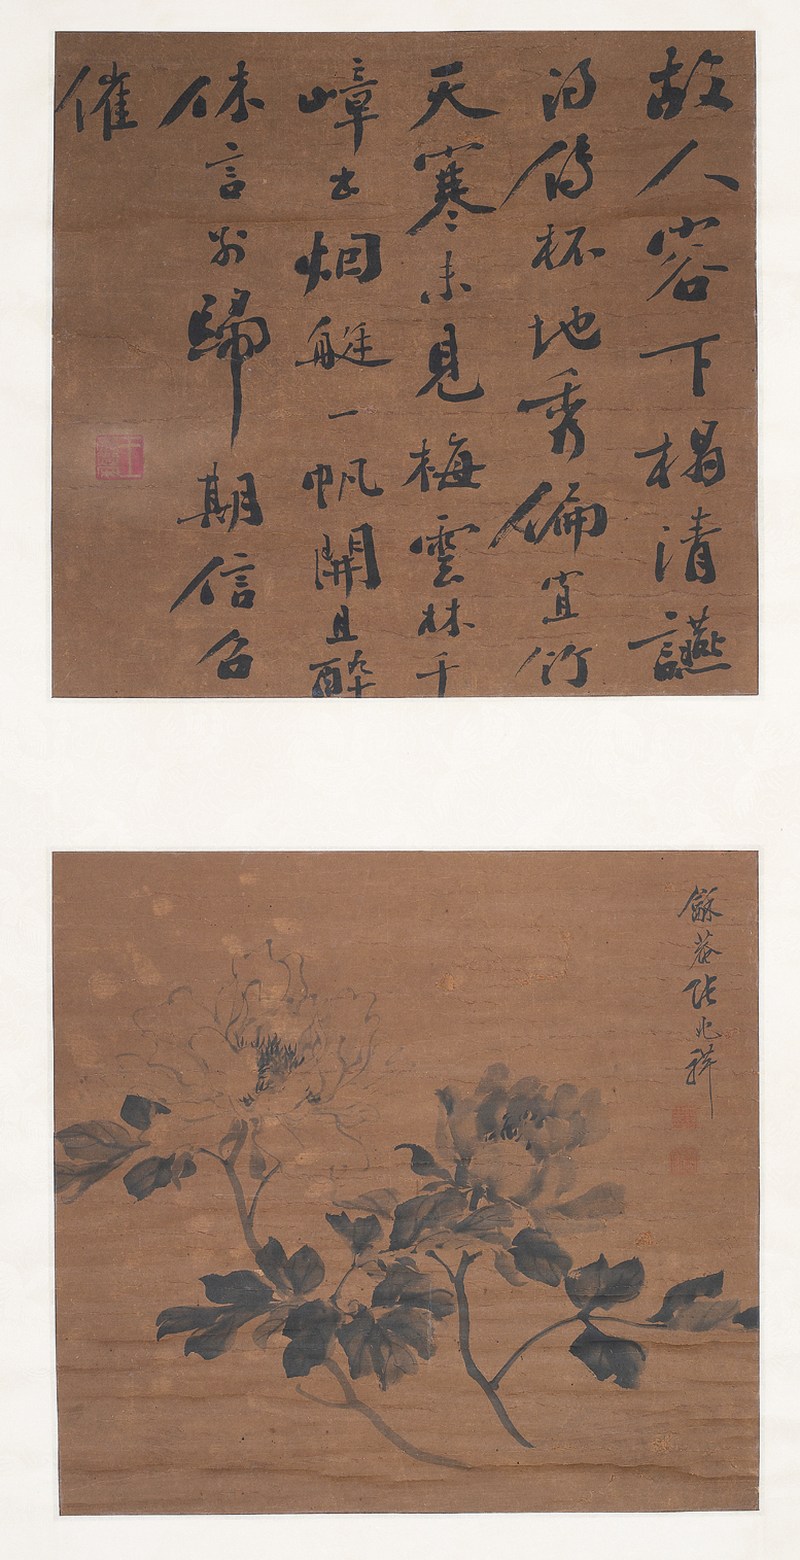 故人容下榻清讌
得傳杯地秀偏宜竹
天寒未見梅雲林千
嶂出烟艇一帆開且醉
休言別歸期信召
催
龢菴張兆祥